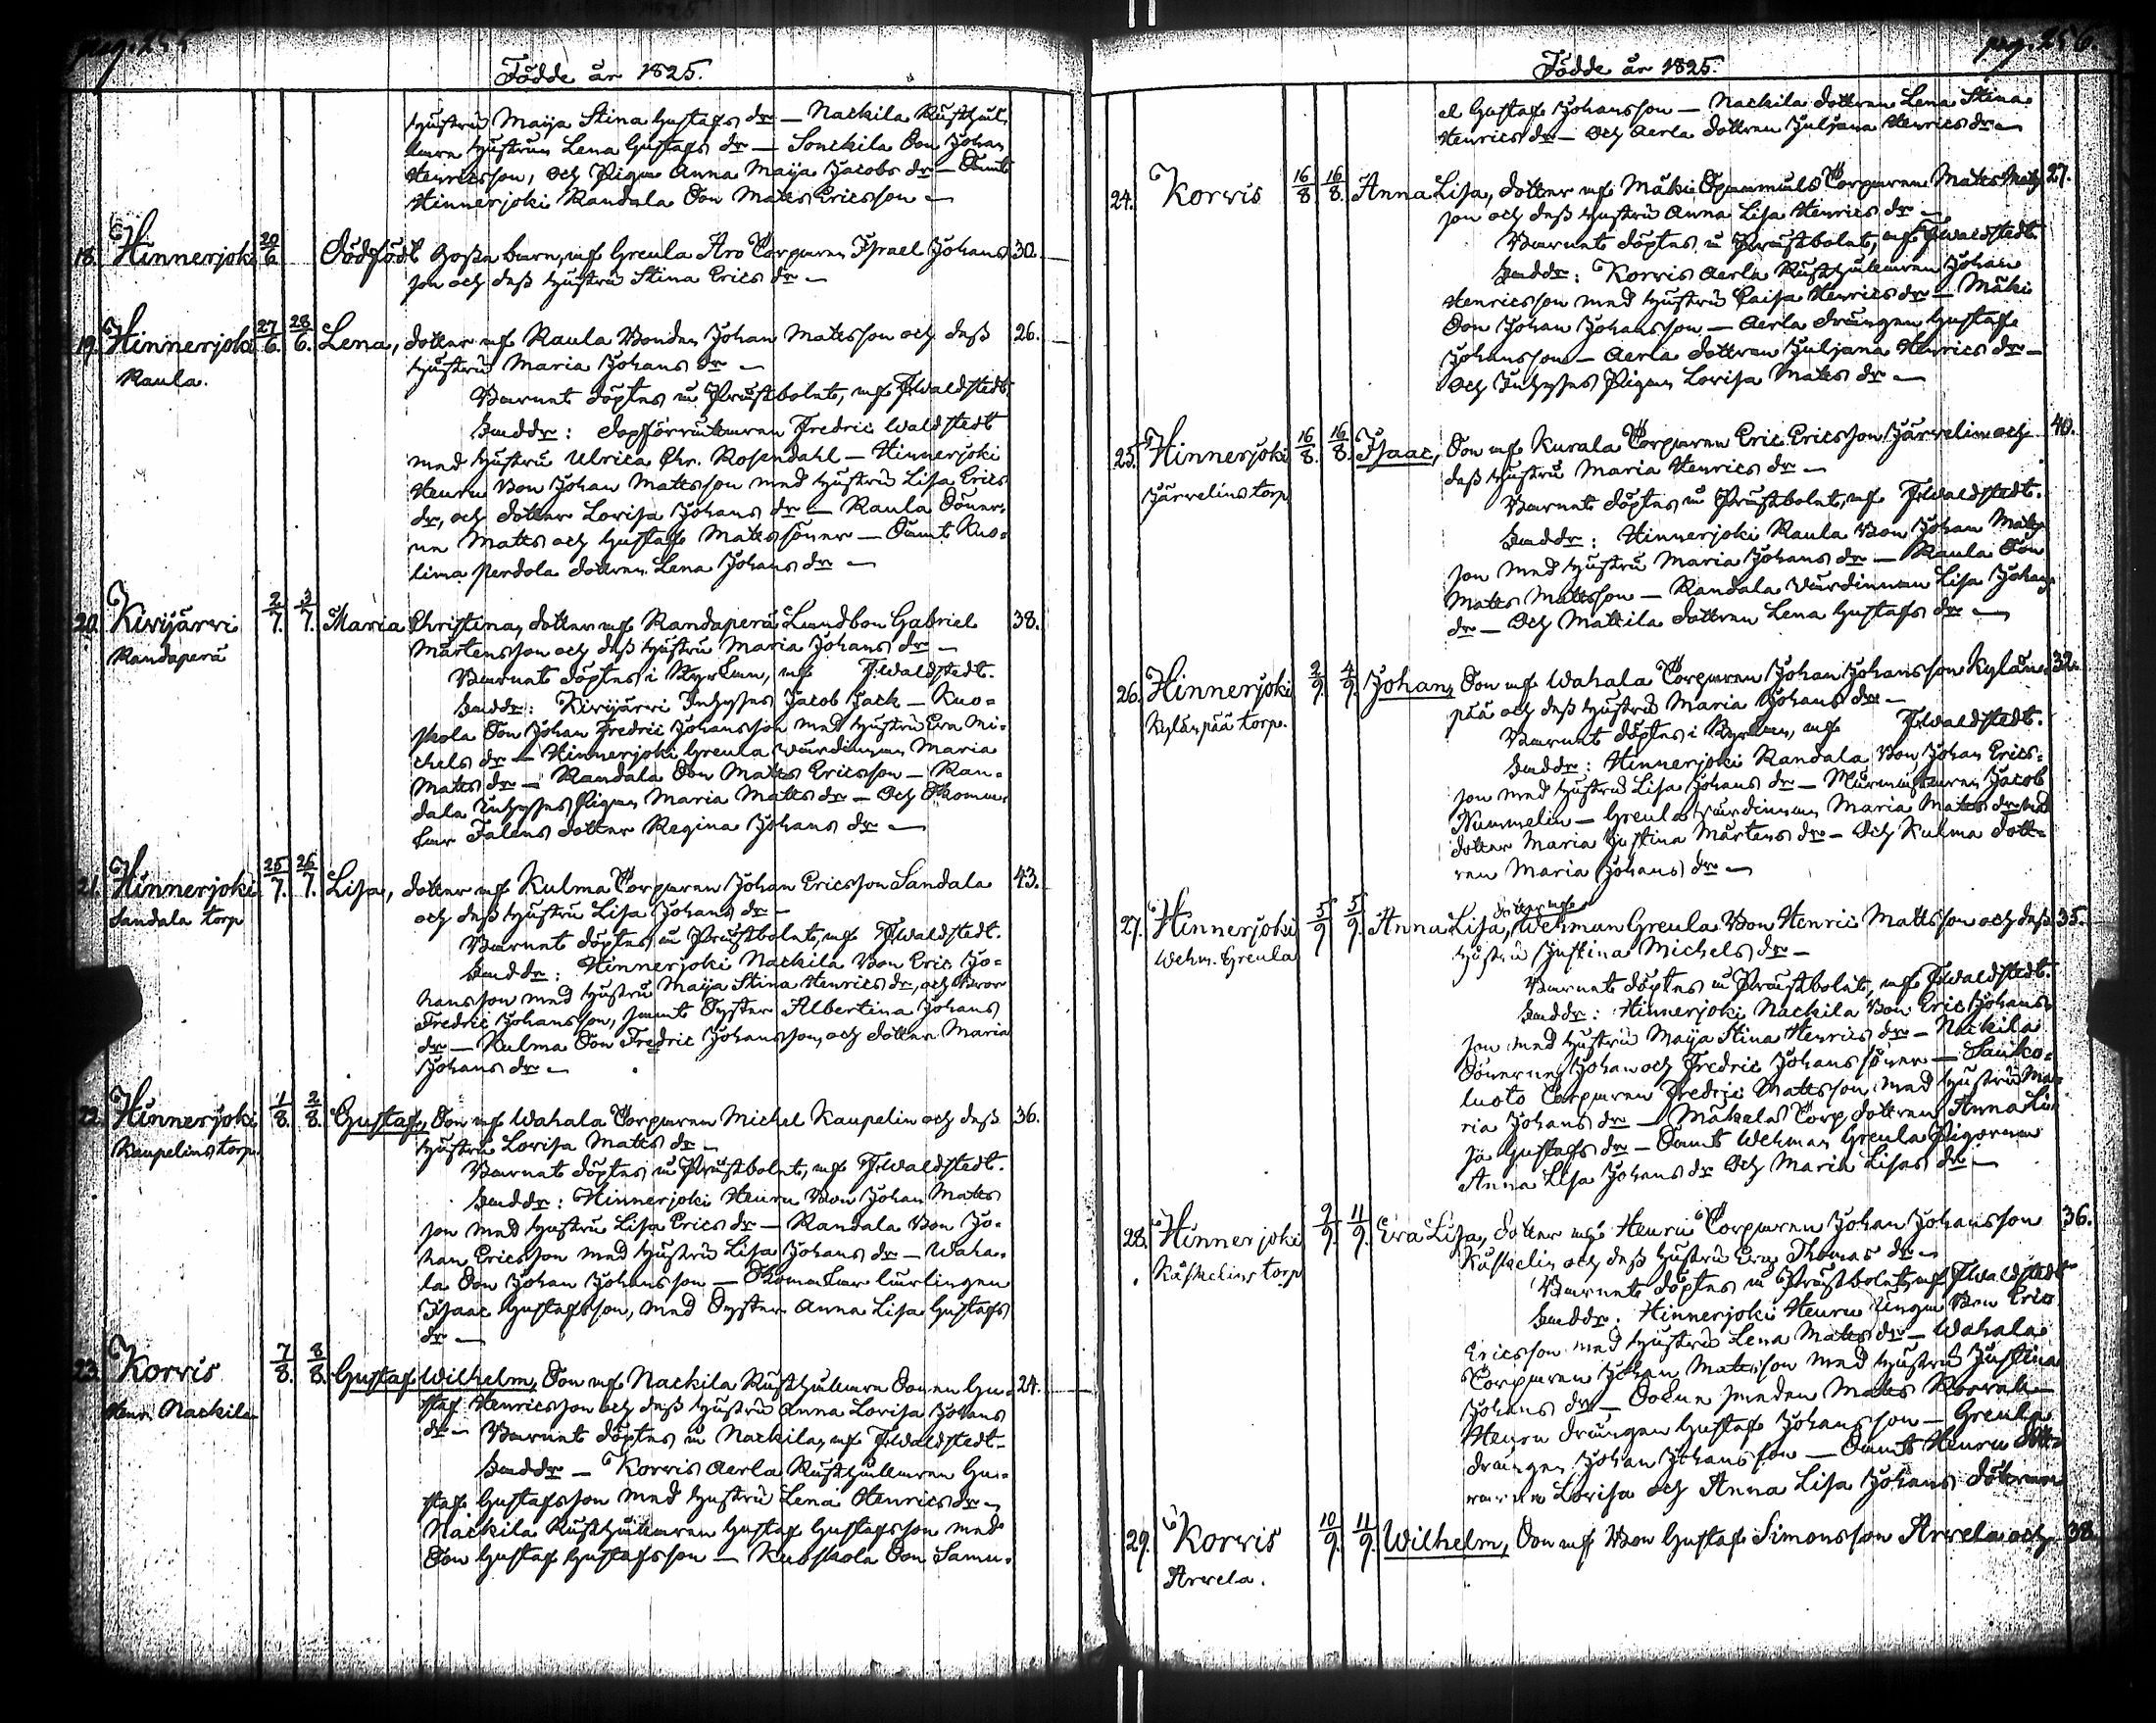 pag. 255
Födde år 1825.
Hustru Maija Stina Gustafs dr — Nackila Rusthål-
laren Hustrun Lena Gustafs dr — Sonckila Son Johan
Henricsson, och Pigan Anna Maija Jacobs dr — Samt
Hinnerjoki Randala Son Matts Ericsson —
18. Hinnerjoki 20/6 Dödfödt Gosse barn, af Greula Aro Torparen Israel Johans 30.
son och dess Hustru Stina Erics dr —
19. Hinnerjoki 27/6. 28/6. Lena, dotter af Raula Bonden Johan Mattsson och dess 26.
Raula. Hustru Maria Johans dr —
Barnet döptes å Prästbolet, af F.Waldstedt.
Faddr: Dopförrättaren Fredric Waldstedt
med Hustru Ulrica Chr. Rosendahl — Hinnerjoki
Heuru Bon Johan Mattsson med Hustru Lisa Erics
dr, och dotter Lovisa Johans dr — Raula Söner-
ne Matts och Gustaf Matts söner — Samt Kuo-
lima Perdola dottren Lena Johans dr —
20. Kivijärvi 2/7. 3/7. Maria Christina, dotter af Randaperä Landbon Gabriel 38.
Randaperä Mårtensson och dess Hustru Maria Johans dr —
Barnet döptes i Kyrkan, af F.Waldstedt.
Faddr: Kivijärvi Inhyses Jacob Jack — Kuo-
skola Son Johan Fredric Johansson med Hustru Eva Mi-
chels dr — Hinnerjoki Greula värdinnan Maria
Matts dr — Randala Son Matts Ericsson — Ran-
dala Inhyses Pigan Maria Matts dr — Och Skoma-
kar Falens dotter Regina Johans dr —
21. Hinnerjoki 25/7. 26/7. Lisa, dotter af Kulma Torparen Johan Ericsson Sandala 43.
Sandala torp och dess Hustru Lisa Johans dr —
Barnet döptes å Prästbolet, af F.Waldstedt.
Faddr: Hinnerjoki Nackila Bon Eric Jo-
hansson med Hustru Maija Stina Henrics dr, och Bror
Fredric Johansson, samt Syster Albertina Johans
dr — Kulma Son Fredric Johansson, och dotter Maria
Johans dr —
22. Hinnerjoki 1/8. 2/8. Gustaf, Son af Wahala Torparen Michel Kaupelin och dess 36.
Kaupelins torp. Hustru Lovisa Matts dr —
Barnet döptes å Prästbolet, af F.Waldstedt.
Faddr: Hinnerjoki Heuru Bon Johan Matts
son med Hustru Lisa Erics dr — Randala Bon Jo-
han Ericsson med Hustru Lisa Johans dr — Waha-
la Son Johan Johansson — Skomakar lärlingen
Isaac Gustafsson, med Syster Anna Lisa Gustafs
dr —
23. Korvis 7/8. 8/8. Gustaf Wilhelm, Son af Nackila Rusthållare Sonen Gu- 24.
Henr. Nackila staf Henricsson och dess Hustru Anna Lovisa Johans
dr — Barnet döptes å Nackila, af F.Waldstedt —
Faddr — Korvis Aerla Rusthållaren Gu-
staf Gustafsson med Hustru Lena Henrics dr —
Nackila Rusthållaren Gustaf Gustafsson med
Son Gustaf Gustafsson — Kuoskola Son Samu-
pag. 256.
Födde år 1825.
el Gustaf Johansson — Nackila dottren Lena Stina
Henrics dr — Och Aerla dottren Juljana Henrics dr —
24. Korvis 16/8 16/8. Anna Lisa, dotter af Mäki Torparen Matts Matts 27.
son och dess Hustru Anna Lisa Henrics dr —
Barnet döptes å Prästbolet, af F.Waldstedt.
Faddr: Korvis Aerla Rusthållaren Johan
Henricsson med Hustru Caisa Henrics dr — Mäki
Son Johan Johansson — Aerla drängen Gustaf
Johansson — Aerla dottren Juljana Henrics dr —
Och Inhyses Pigan Lovisa Matts dr —
25. Hinnerjoki 16/8. 16/8. Isaac, Son af Kurala Torparen Eric Ericsson Järvelin och 40.
Järvelins torp dess Hustru Maria Henrics dr —
Barnet döptes å Prästbolet, af F.Waldstedt.
Faddr: Hinnerjoki Raula Bon Johan Matts
son med Hustru Maria Johans dr — Raula Son
Matts Mattsson — Randala värdinnan Lisa Johans
dr — Och Mattila dottren Lena Gustafs dr —
26. Hinnerjoki 2/9. 4/9. Johan, Son af Wahala Torparen Johan Johansson Kylän- 32.
Kylänpää torp. pää och dess Hustru Maria Johans dr —
Barnet döptes i Kyrkan, af F.Waldstedt.
Faddr: Hinnerjoki Randala Bon Johan Erics-
son med Hustru Lisa Johans dr — Murmästaren Jacob
Nummelin — Greula värdinnan Maria Matts dr med
dotter Maria Justina Mårtens dr — Och Kulma dott-
ren Maria Johans dr —
dotter af
27. Hinnerjoki 5/9 5/9. Anna Lisa, Wehman Greula Bon Henric Mattsson och dess 35.
Wehm. Greula Hustru Justina Michels dr —
Barnet döptes å Prästbolet, af F.Waldstedt.
Faddr: Hinnerjoki Nackila Bon Eric Johans-
son med Hustru Maija Stina Henrics dr — Nackila
Sönerne Johan och Fredric Johans söner — Sauko-
luoto Torparen Fredric Mattsson med Hustru Ma-
ria Johans dr — Mäkelä Torp dottren Anna Li-
sa Gustafs dr — Samt Wehman Greula Pigorna
Anna Lisa Johans dr Och Maria Lisas dr —
28. Hinnerjoki 9/9. 11/9. Eva Lisa, dotter af Heuru Torparen Johan Johansson 36.
Käskelins torp Käskelin och dess Hustru Eva Thomas dr —
Barnet döptes å Prästbolet, af F.Waldstedt
Faddr: Hinnerjoki Heuru unga Bon Eric
Ericsson med Hustru Lena Matts dr — Wahala
Torparen Johan Mattsson med Hustru Justina
Johans dr — Sockne smeden Matts
Heuru drängen Gustaf Johansson — Greula
drängen Johan Johansson — Samt Heuru dött-
rarna Lovisa och Anna Lisa Johans döttrar
29. Korvis 10/9. 11/9. Wilhelm, Son af Bon Gustaf Simonsson Arvela och 38.
Arvela.